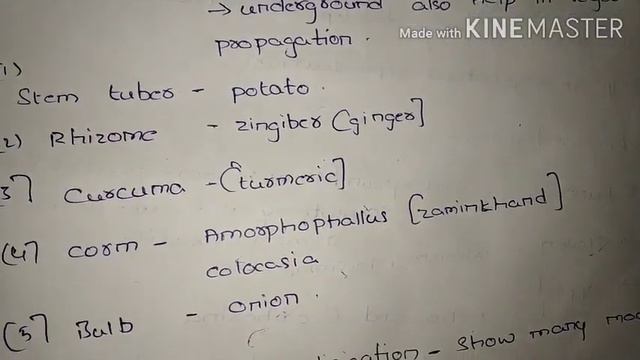 → underground also help in
Made with KINEMASTER
propagation.
1)
Stem tuber - potato.
(2) Rhizome - zingiber (ginger]
3] Curcuma - (turmeric]
(4] corm - Amorphophallus [zaminkhand]
colocasia
(5] Bulb - onion.
- show many